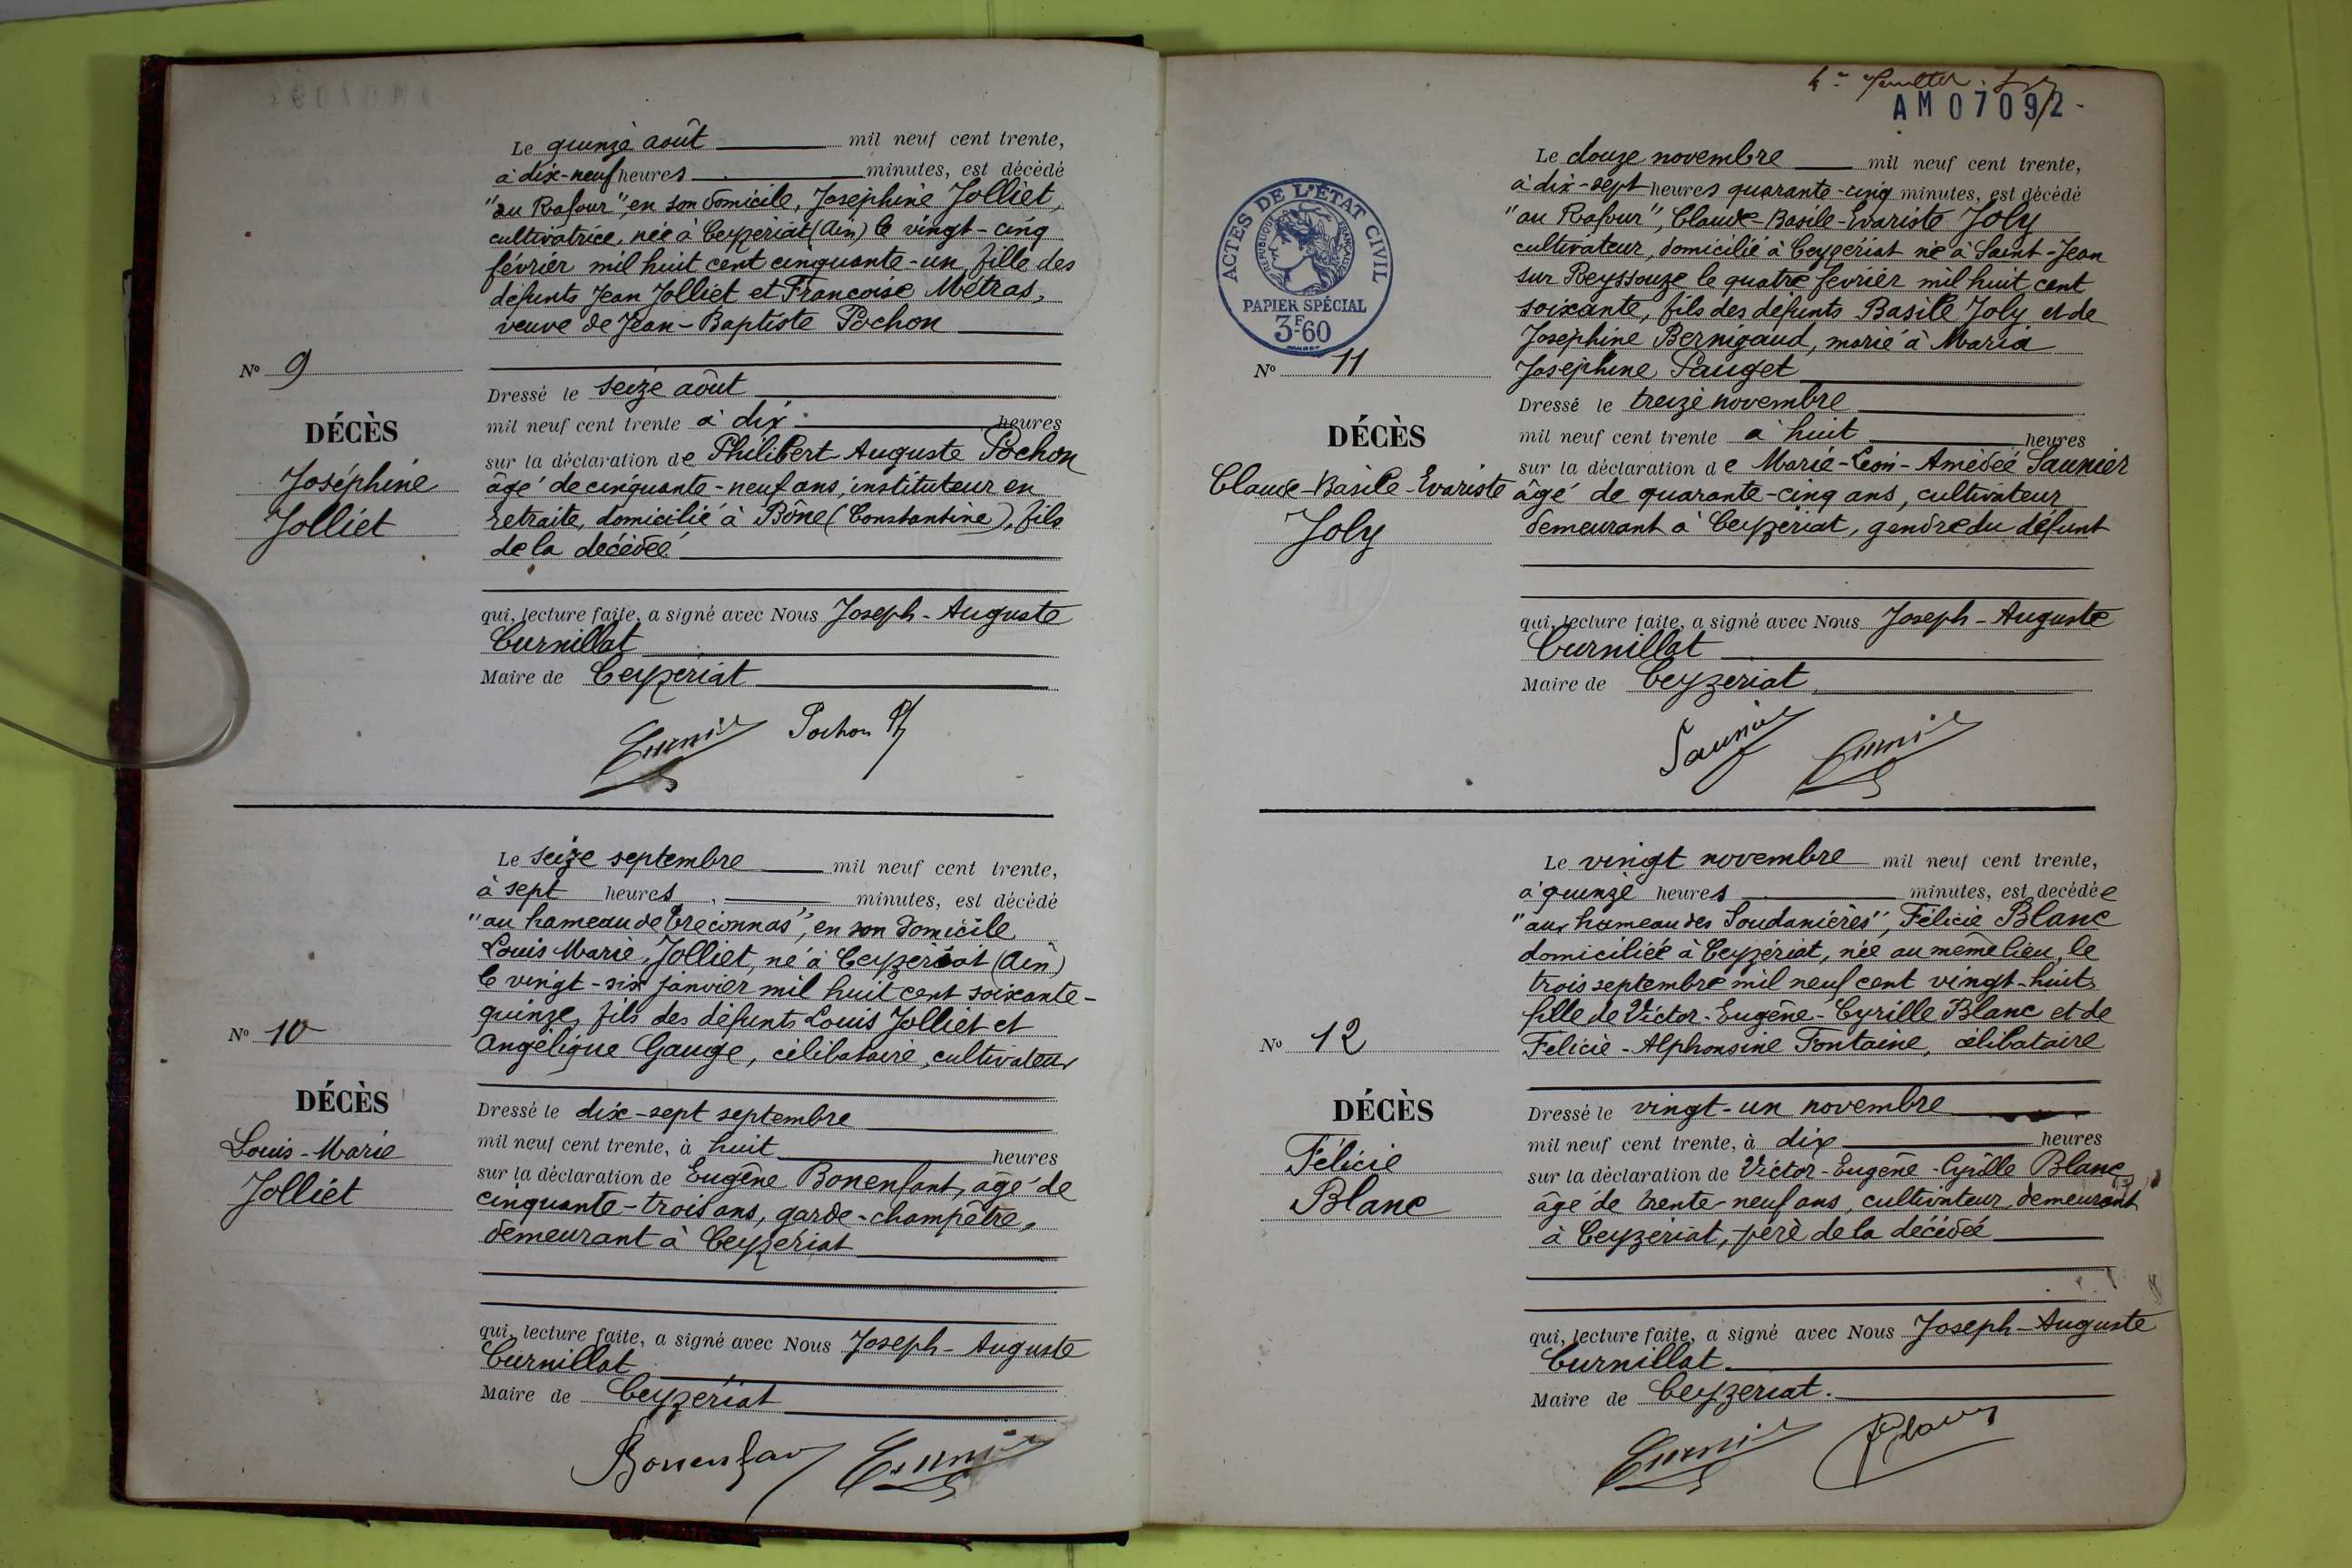 Le quinze août mil neuf cent trente,
à dix-neuf heures minutes, est décédé
"au Rafour", en son domicile, Joséphine Jolliet,
cultivatrice, née à Ceyzériat (Ain) le vingt-cinq
février mil huit cent cinquante-un, fille des
défunts Jean Jolliet et Françoise Métras,
veuve de Jean-Baptiste Pochon
Nº 9
DÉCÈS
Joséphine
Jolliet
Dressé le seize août
mil neuf cent trente à dix heures
sur la déclaration de Philibert Auguste Pochon
âgé de cinquante-neuf ans, instituteur en
retraite, domicilié à Bône (Constantine), fils
de la décédée
qui, lecture faite, a signé avec Nous Joseph-Auguste
Curnillat
Maire de Ceyzériat
Pochon
Le seize septembre mil neuf cent trente,
à sept heures, minutes, est décédé
"au hameau de Treconnas", en son domicile
Louis Marie Jolliet, né à Ceyzériat (Ain)
le vingt-six janvier mil huit cent soixante-
quinze, fils des défunts Louis Jolliet et
Angélique Gauge, célibataire, cultivateur
Nº 10
DÉCÈS
Louis-Marie
Jolliet
Dressé le dix-sept septembre
mil neuf cent trente, à huit heures
sur la déclaration de Eugène Bonenfant, âgé de
cinquante-trois ans, garde-champêtre,
demeurant à Ceyzériat
qui, lecture faite, a signé avec Nous Joseph-Auguste
Curnillat
Maire de Ceyzériat
Bonenfan
AM07092
ACTES DE L'ÉTAT CIVIL
RÉPUBLIQUE FRANÇAISE
PAPIER SPÉCIAL
3F60
Le douze novembre mil neuf cent trente,
à dix-sept heures quarante-cinq minutes, est décédé
"au Rafour", Claude-Basile-Evariste Joly
cultivateur, domicilié à Ceyzériat né à Saint-Jean
sur Reyssouze le quatre février mil huit cent
soixante, fils des défunts Basile Joly et de
Joséphine Bernigaud, marié à Maria
Joséphine Pauget
Nº 11
DÉCÈS
Claude-Basile-Evariste
Joly
Dressé le treize novembre
mil neuf cent trente à huit heures
sur la déclaration de Marie-Léon-Amédée Saunier
âgé de quarante-cinq ans, cultivateur
demeurant à Ceyzériat, gendre du défunt
qui, lecture faite, a signé avec Nous Joseph-Auguste
Curnillat
Maire de Ceyzériat
Saunier
Le vingt novembre mil neuf cent trente,
à quinze heures minutes, est décédée
"aux hameau des Soudanières", Félicie Blanc
domiciliée à Ceyzériat, née au même lieu, le
trois septembre mil neuf cent vingt-huit,
fille de Victor-Eugène-Cyrille Blanc et de
Félicie-Alphonsine Fontaine, célibataire
Nº 12
DÉCÈS
Félicie
Blanc
Dressé le vingt-un novembre
mil neuf cent trente, à dix heures
sur la déclaration de Victor-Eugène-Cyrille Blanc,
âgé de trente-neuf ans, cultivateur demeurant
à Ceyzériat, père de la décédée
qui, lecture faite, a signé avec Nous Joseph-Auguste
Curnillat
Maire de Ceyzériat.
Blanc